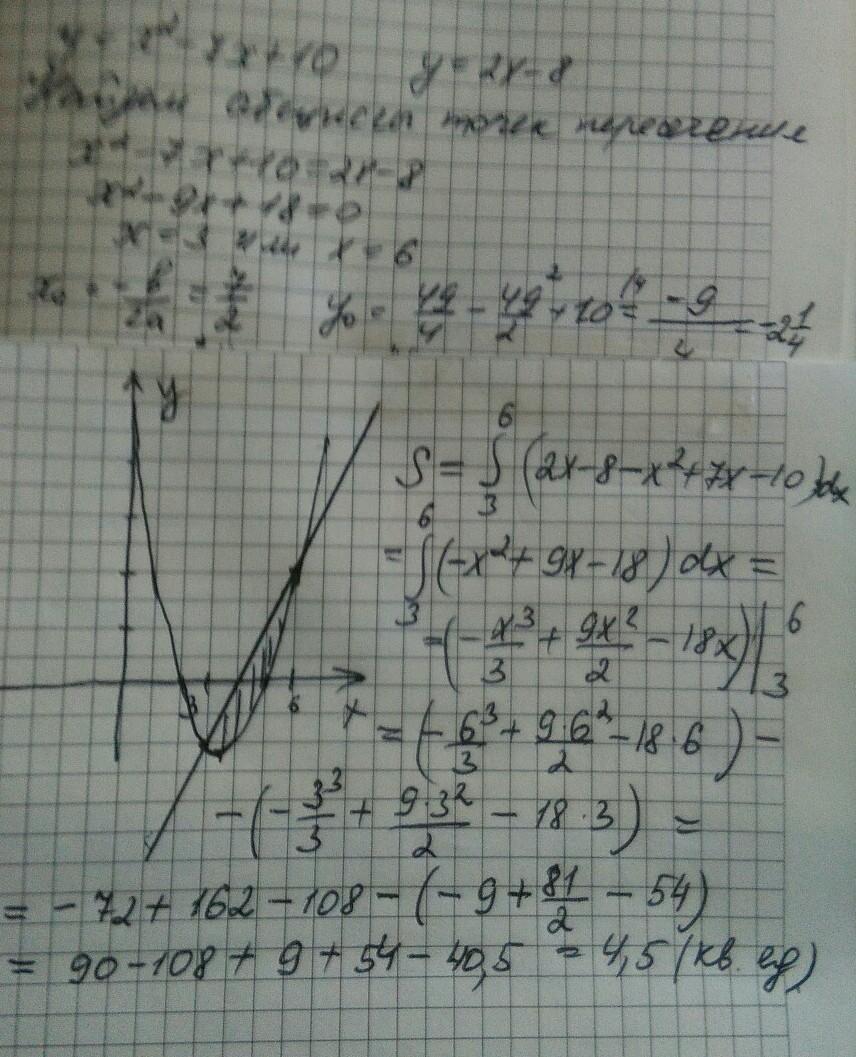 y = x² - 7x + 10 y = 2x - 8
Найдем абсциссы точек пересечения
x² - 7x + 10 = 2x - 8
x² - 9x + 18 = 0
x = 3 или x = 6
x₀ = -b/2a = 7/2 y₀ = 49/4 - 49/2 + 10 = -9/4 = -2 1/4
y
3 6 x
S = ∫₃⁶ (2x-8-x²+7x-10)dx
= ∫₃⁶ (-x²+9x-18)dx =
= (-x³/3 + 9x²/2 - 18x)|₃⁶
= (-6³/3 + 9·6²/2 - 18·6) -
- (-3³/3 + 9·3²/2 - 18·3) =
= -72 + 162 - 108 - (-9 + 81/2 - 54)
= 90 - 108 + 9 + 54 - 40,5 = 4,5 (кв. ед)